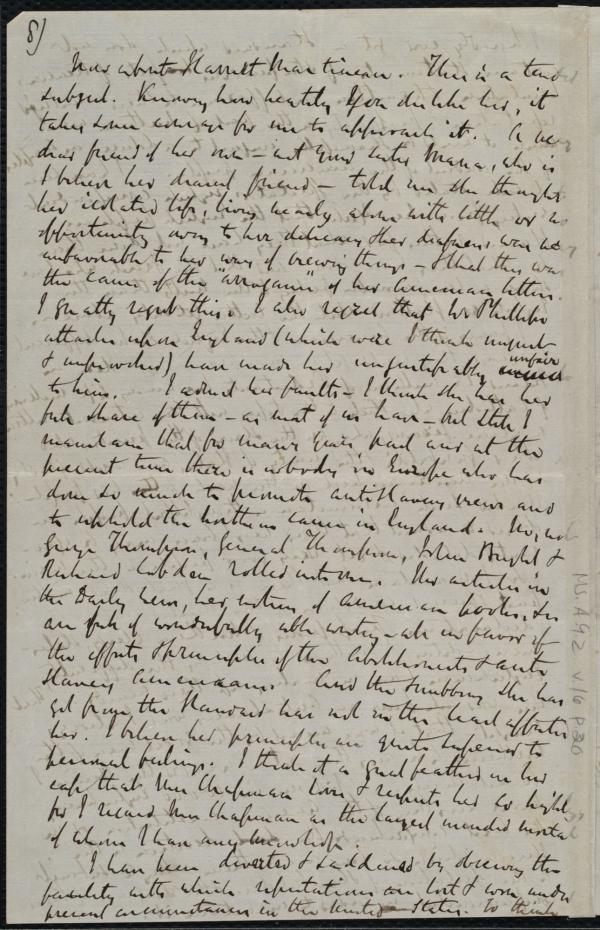 8)
Now about Harriet Martineau. This is a tend
subject. Knowing how heartily you dislike her, it
takes some courage for me to approach it. A very
dear friend of her own – not your sister Maria, who is
I believe her dearest friend – told me she thought
her isolated life, living nearly alone with little or no
opportunity owing to her delicacy & her deafness was
unfavorable to her way of viewing things – & that this was
the cause of the "arrogance" of her American letters.
I greatly regret this. I also regret that W. Phillips'
attacks upon England (which were I think unjust
& unprovoked) have made her unjustifiably unfair
to him. I admit her faults – I think she has her
full share of them – as most of us have – but still I
maintain that for many years past and at the
present time there is nobody in Europe who has
done so much to promote antislavery views and
to uphold the Northern cause in England. No, not
George Thompson, General Thompson, John Bright &
Richard Cobden rolled into one. Her articles in
the Daily News, her notices of American books, &c
are full of wonderfully able writing – all in favor of
the efforts & principles of the Abolitionists & anti
slavery Americans. And the snubbing she has
got from the Standard has not in the least affected
her. I believe her principles are quite superior to
personal feelings. I think it a great feather in her
cap that Mrs Chapman loves & respects her so highly
for I regard Mrs Chapman as the largest minded mortal
of whom I have any knowledge.
I have been diverted & saddened by observing the
facility with which reputations are lost & won under
present circumstances in the United States. To think
MS. A. 9.2 v.16 p.20